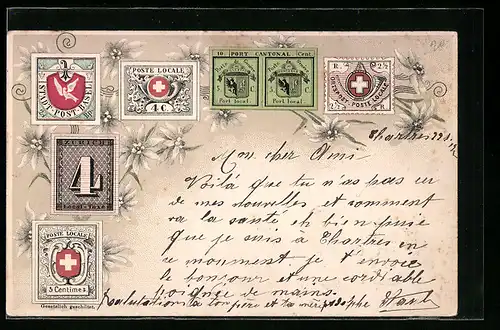 10 PORT CANTONAL Cent.
STADT-POST-BASEL
POSTE LOCALE
4 C.
5 C. 5 C.
Port local. Port local.
R. 2½
ORTSPOST·POSTE LOCALE
2½ R.
Chartres
Mon cher Ami
Voilà que tu n'as pas eu
de mes nouvelles et comment
va la santé eh bien puie
que je suis à Chartres en
ce moment je t'envoie
le bonjour et une cordiable
poignée de mains.
4
POSTE LOCALE
5 Centimes
Gesetzlich geschützt.
Salutations à ton père et ta mère